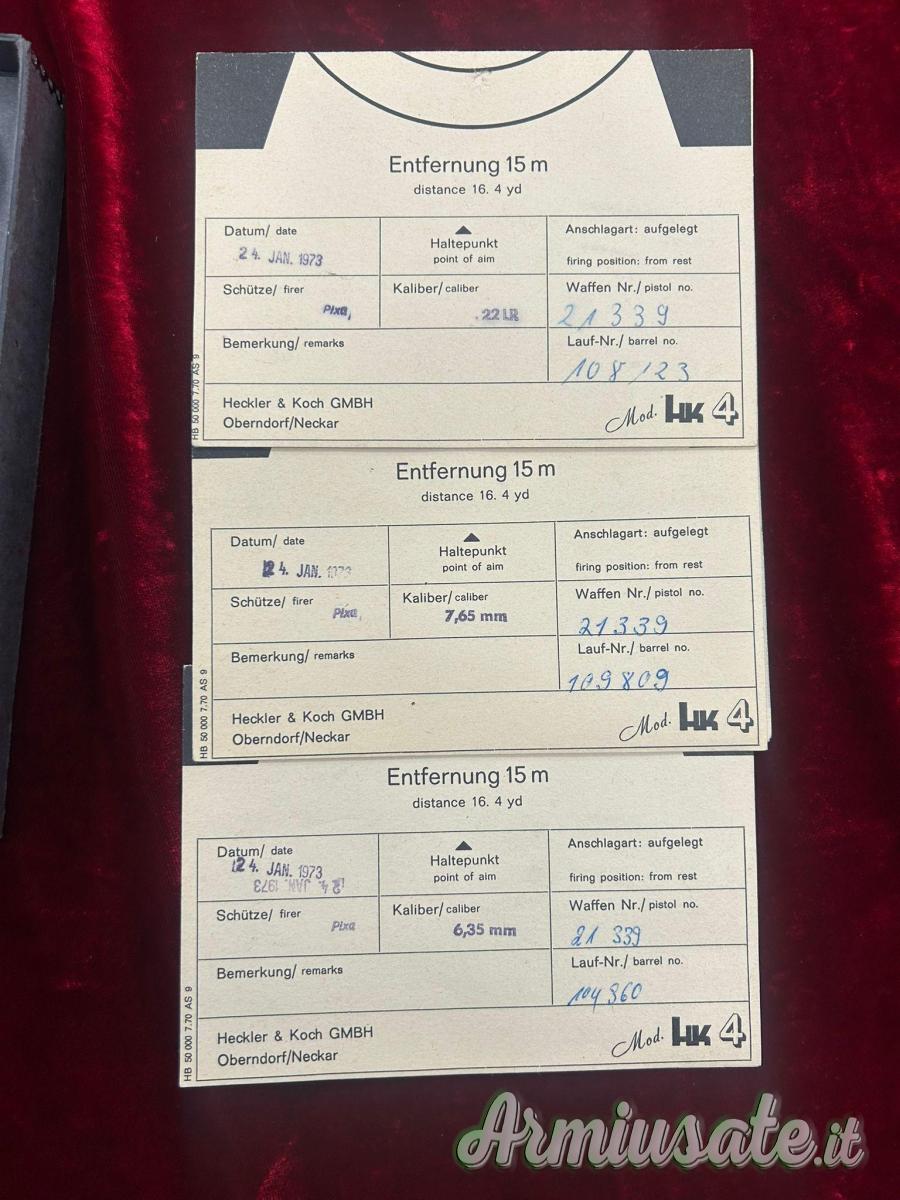 Entfernung 15 m
distance 16. 4 yd
Datum/ date
24. JAN. 1973
Haltepunkt
point of aim
Anschlagart: aufgelegt
firing position: from rest
Schütze/ firer
Pixa
Kaliber/ caliber
.22 LR
Waffen Nr./ pistol no.
21339
Bemerkung/ remarks
Lauf-Nr./ barrel no.
108123
Heckler & Koch GMBH
Oberndorf/Neckar
Mod. HK 4
HB 50 000 7.70 AS 9
Entfernung 15 m
distance 16. 4 yd
Datum/ date
24. JAN. 1973
Haltepunkt
point of aim
Anschlagart: aufgelegt
firing position: from rest
Schütze/ firer
Pixa
Kaliber/ caliber
7,65 mm
Waffen Nr./ pistol no.
21339
Bemerkung/ remarks
Lauf-Nr./ barrel no.
109809
Heckler & Koch GMBH
Oberndorf/Neckar
Mod. HK 4
HB 50 000 7.70 AS 9
Entfernung 15 m
distance 16. 4 yd
Datum/ date
24. JAN. 1973
24. JAN. 1973
Haltepunkt
point of aim
Anschlagart: aufgelegt
firing position: from rest
Schütze/ firer
Pixa
Kaliber/ caliber
6,35 mm
Waffen Nr./ pistol no.
21 339
Bemerkung/ remarks
Lauf-Nr./ barrel no.
Heckler & Koch GMBH
Oberndorf/Neckar
Mod. HK 4
HB 50 000 7.70 AS 9
Armiusate.it